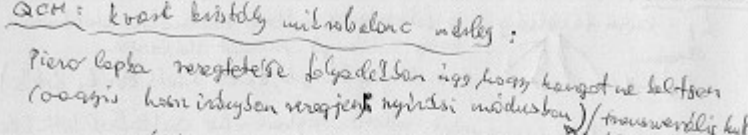 QCM: kvarc kristály mikrobalanc mérleg:
Piezo lapka rezegtetése folyadékban úgy hogy hangot ne keltsen
(azaz is horz irányban rezegjen nyírási módusban) / transzverzális